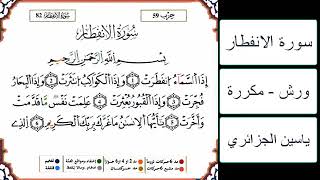 سورة الانفطار 82
حزب 59
سُورَةُ الاِنفِطَارِ
بِسْمِ اللَّهِ الرَّحْمَٰنِ الرَّحِيمِ
إِذَا اَ۬لسَّمَآءُ اُ۪نفَطَرَتْ ① وَإِذَا اَ۬لْكَوَاكِبُ اُ۪نتَثَرَتْ ② وَإِذَا اَ۬لْبِحَارُ
فُجِّرَتْ ③ وَإِذَا اَ۬لْقُبُورُ بُعْثِرَتْ ④ عَلِمَتْ نَفْسٞ مَّا قَدَّمَتْ
وَأَخَّرَتْ ⑤ يَٰٓأَيُّهَا اَ۬لِانسَٰنُ مَا غَرَّكَ بِرَبِّكَ اَ۬لْكَرِيمِ ⑥ اِ۬لذِے
سورة الانفطار
ورش - مكررة
ياسين الجزائري